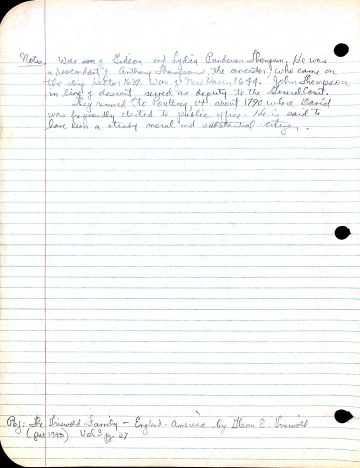 Notes. Was son of Gideon and Lydia Punderson Thompson. He was
a descendant of Anthony Thompson the ancestor, who came on
the ship Hector 1637. Was of New Haven, 1644. John Thompson
in line of descent served as deputy to the General Court.
They removed to Poultney, Vt about 1790 where David
was frequently elected to public office. He is said to
have been a sturdy moral and substantial citizen.
Ref: The Griswold Family - England-America by Glenn E. Griswold
Vol 3 pg. 27